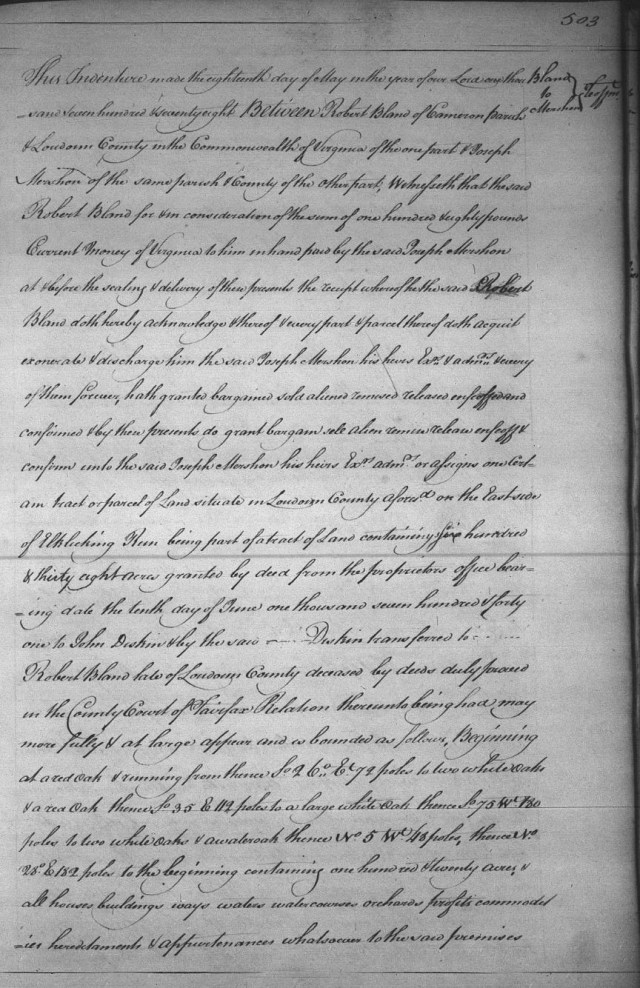 503
This Indenture made the eighteenth day of May in the year of our Lord one thou
sand seven hundred & seventy eight Between Robert Bland of Cameron parish
& Loudoun County in the Commonwealth of Virginia of the one part & Joseph
Morshon of the same parish & County of the other part, Witnesseth that the said
Robert Bland for & in consideration of the sum of one hundred & eighty pounds
Current Money of Virginia to him in hand paid by the said Joseph Morshon
at & before the sealing & delivery of these presents the receipt whereof he the said Robert
Bland doth hereby acknowledge & thereof & every part & parcel thereof doth acquit
exonerate & discharge him the said Joseph Morshon his heirs Exrs. & admrs. & every
of them forever, hath granted bargained sold aliened remised released enfeoffed and
confirmed & by these presents do grant bargain sell alien remise release enfeoff &
confirm unto the said Joseph Morshon his heirs Exrs. admrs. or assigns one Cert-
ain tract or parcel of Land situate in Loudoun County aforesd. on the East side
of Elklicking Run being part of a tract of Land containing six hundred
& thirty eight acres granted by deed from the proprietors office bear-
-ing date the tenth day of June one thousand seven hundred & forty
one to John Diskin & by the said Diskin transferred to
Robert Bland late of Loudoun County deceased by deeds duly proved
in the County Court of Fairfax Relation thereunto being had may
more fully & at large appear and is bounded as follows, Beginning
at a red oak & running from thence So. 26o. Et. 72 poles to two white oaks
& a red oak thence So 35 E 112 poles to a large white oak thence So. 75 Wt. 180
poles to two white oaks & a water oak thence No 5 Wt. 48 poles, thence No.
28o. E 182 poles to the beginning containing one hundred & twenty acres, &
all houses buildings ways waters watercourses orchards profits commodit
-ies hereditaments & appurtenances whatsoever to the said premises
Bland
to
Morshon